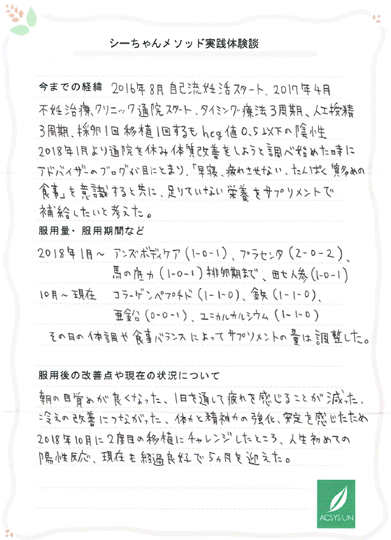 シーちゃんメソッド実践体験談
今までの経緯 2016年8月 自己流妊活スタート、2017年4月
不妊治療、クリニック通院スタート、タイミング療法3周期、人工授精
3周期、採卵1回 移植1回するもhcg値0.5以下の陰性
2018年1月より通院を休み体質改善をしようと調べ始めた時に
アドバイザーのブログが目にとまり、「早寝、疲れさせない、たんぱく質多めの
食事」を意識すると共に、足りていない栄養をサプリメントで
補給したいと考えた。
服用量・服用期間など
2018年1月〜 アンズ・ボディケア(1-0-1)、プラセンタ(2-0-2)、
馬の底力(1-0-1)排卵期まで、田七人参(1-0-1)
10月〜現在 コラーゲンペプチド(1-1-0)、鉄(1-1-0)、
亜鉛(0-0-1)、ユニカルカルシウム(1-1-0)
その日の体調や食事バランスによってサプリメントの量は調整した。
服用後の改善点や現在の状況について
朝の目覚めが良くなった、1日を通して疲れを感じることが減った、
冷えの改善につながった、体力と精神力の強化、安定を感じたため
2018年10月に2度目の移植にチャレンジしたところ、人生初めての
陽性反応、現在も経過良好で5ヶ月を迎えた。
ACSYSUN